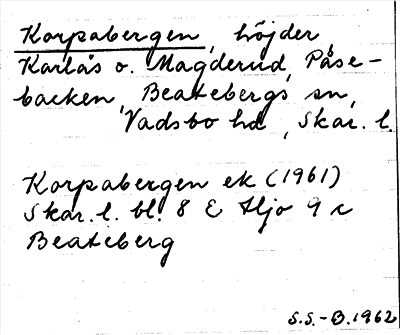 Korpabergen, höjder,
Karlås o. Magderud, Påse-
backen, Beatebergs sn,
Vadsbo hd, Skar. l.
Korpabergen ek (1961)
Skar. l. bl. 8 E Hjo 9 c
Beateberg
S.S.-B.1962